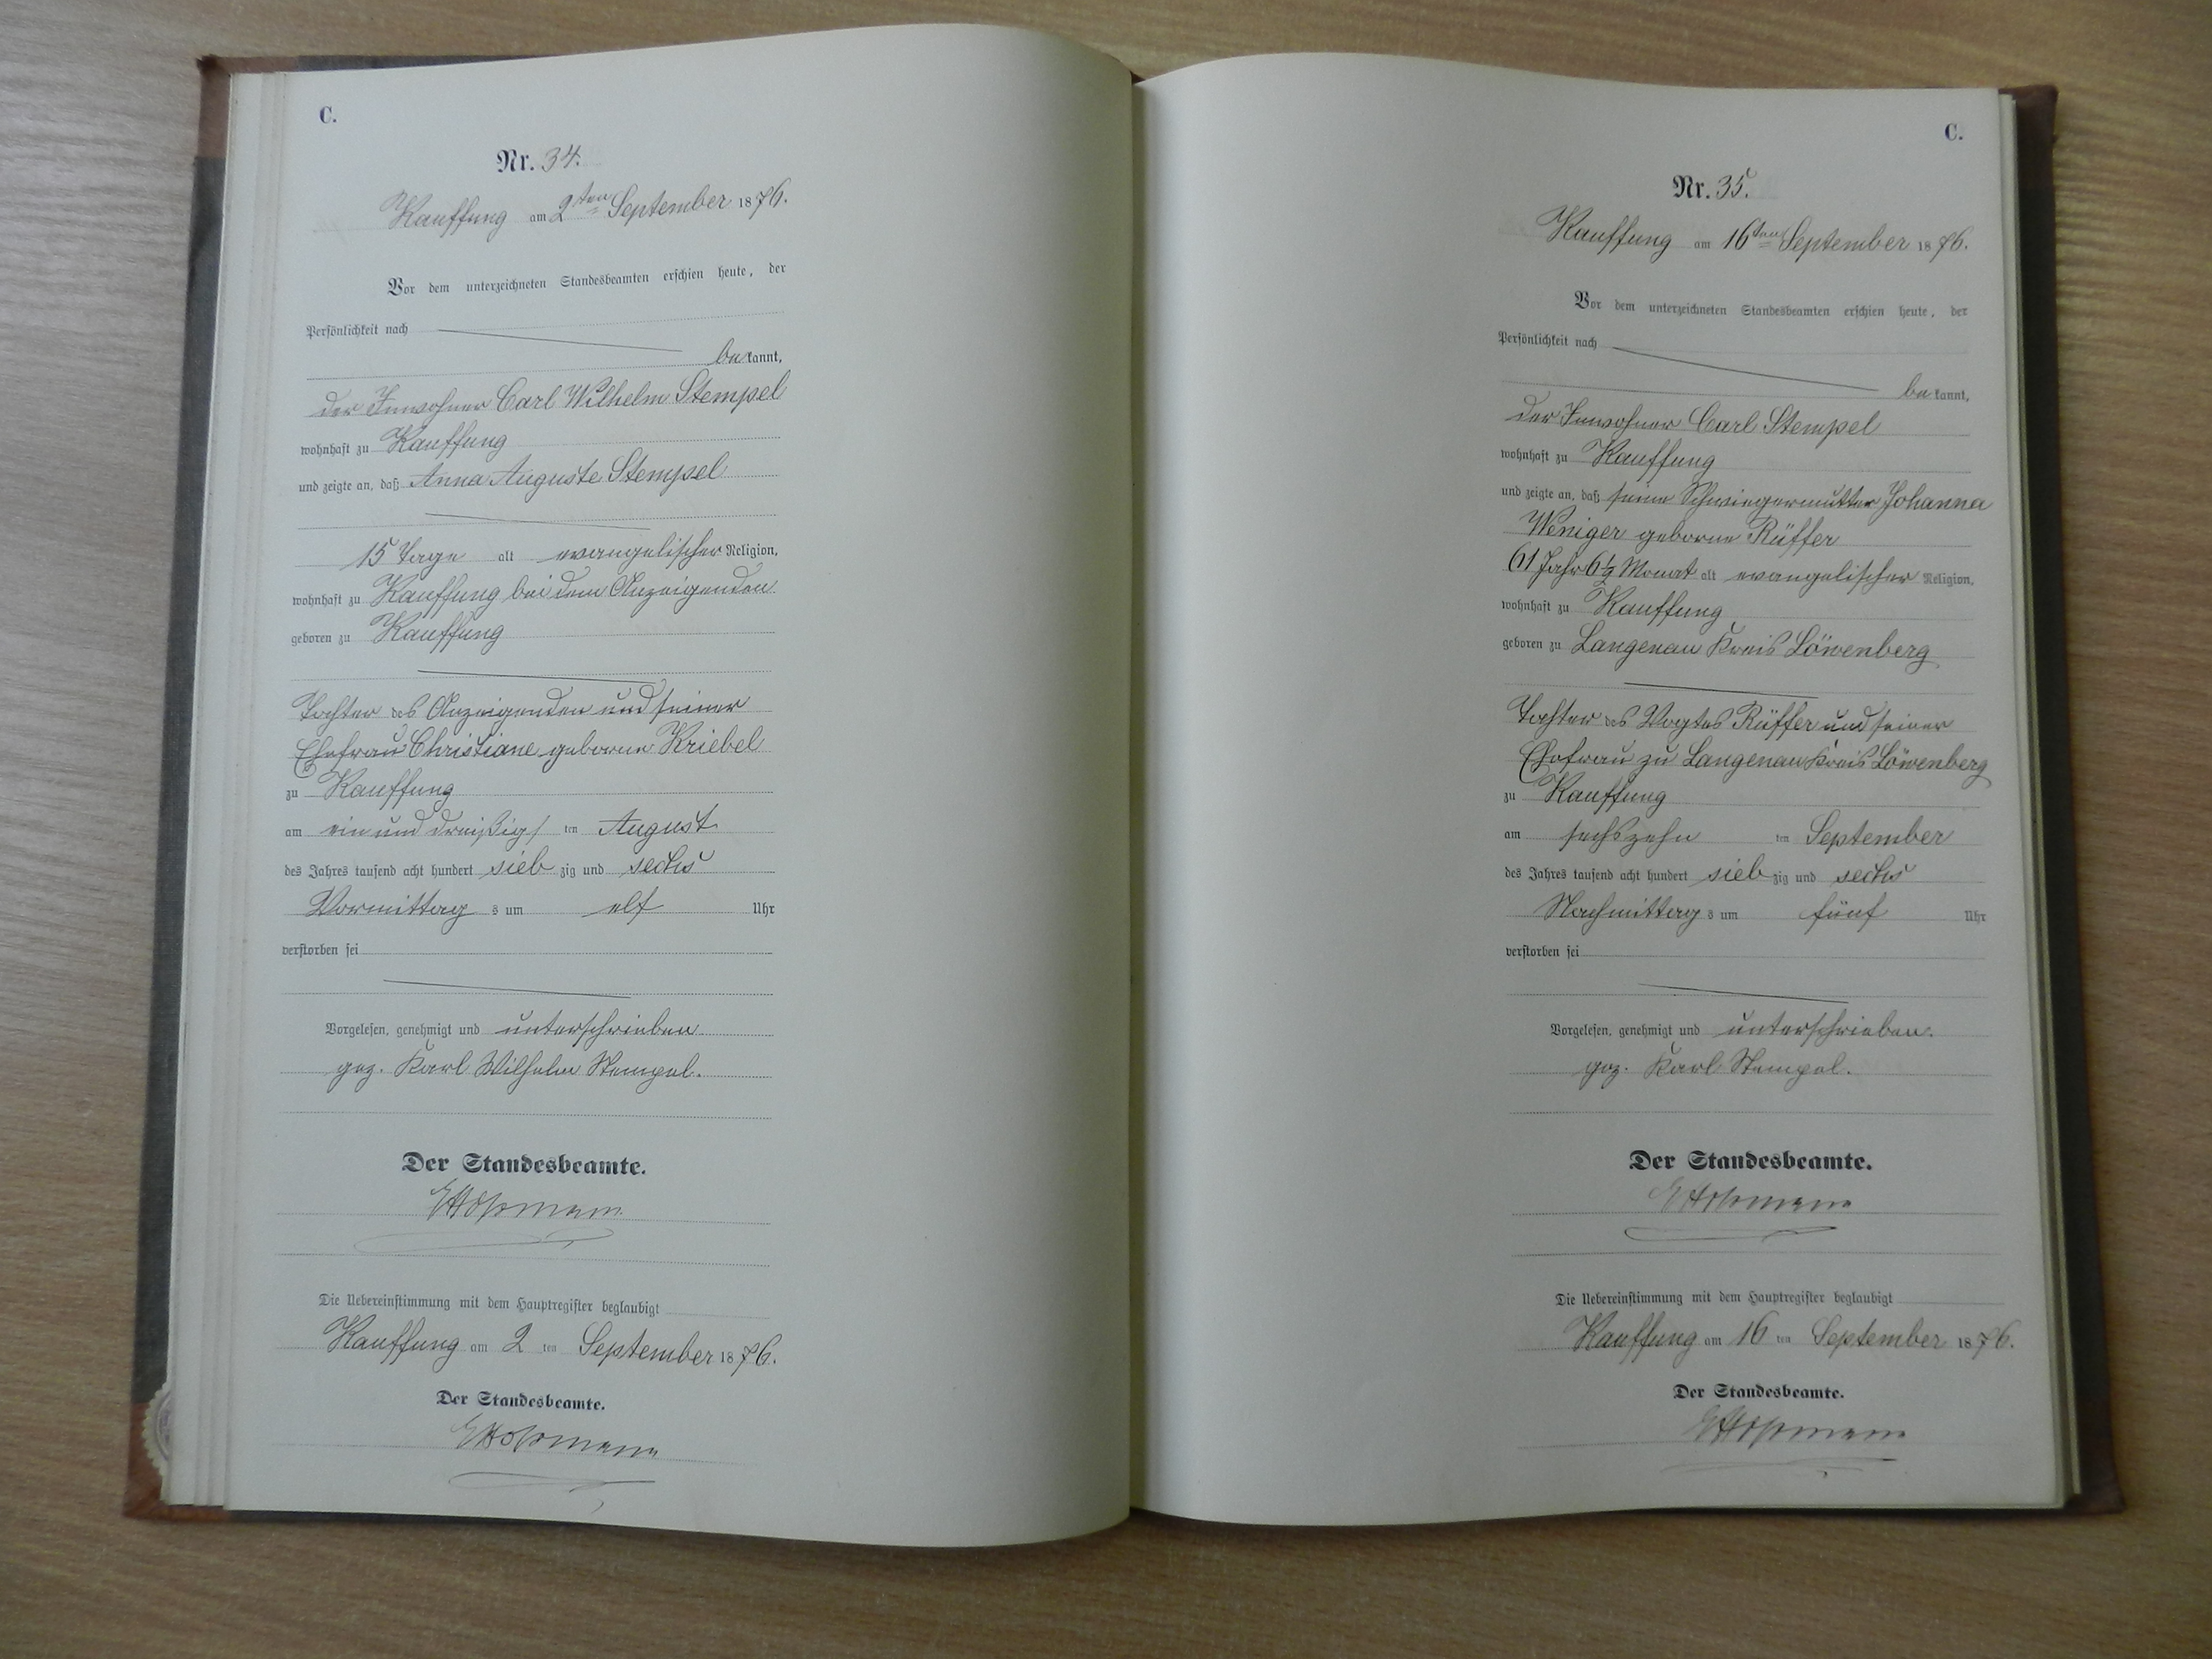 C.
Nr. 34.
Kauffung am 2ten September 1876.
Vor dem unterzeichneten Standesbeamten erschien heute, der
Persönlichkeit nach
bekannt,
der Inwohner Carl Wilhelm Stempel
wohnhaft zu Kauffung
und zeigte an, daß Anna Auguste Stempel
15 Tage alt evangelischer Religion,
wohnhaft zu Kauffung bei dem Anzeigenden
geboren zu Kauffung
Tochter des Anzeigenden und seiner
Ehefrau Christiane geborne Kriebel
zu Kauffung
am ein und dreißig ten August
des Jahres tausend acht hundert siebzig und sechs
Vormittags um elf Uhr
verstorben sei
Vorgelesen, genehmigt und unterschrieben
gez. Karl Wilhelm Stempel.
Der Standesbeamte.
Die Uebereinstimmung mit dem Hauptregister beglaubigt
Kauffung am 2 ten September 1876.
Der Standesbeamte.
C.
Nr. 35.
Kauffung am 16ten September 1876.
Vor dem unterzeichneten Standesbeamten erschien heute, der
Persönlichkeit nach
bekannt,
der Inwohner Carl Stempel
wohnhaft zu Kauffung
und zeigte an, daß seine Schwiegermutter Johanna
Weniger geborne Rüffer
61 Jahr 6½ Monat alt evangelischer Religion,
wohnhaft zu Kauffung
geboren zu Langenau Kreis Löwenberg
Tochter des Vogtes Rüffer und seiner
Ehefrau zu Langenau Kreis Löwenberg
zu Kauffung
am sechszehn ten September
des Jahres tausend acht hundert siebzig und sechs
Nachmittags um fünf Uhr
verstorben sei
Vorgelesen, genehmigt und unterschrieben.
gez. Karl Stempel.
Der Standesbeamte.
Die Uebereinstimmung mit dem Hauptregister beglaubigt
Kauffung am 16 ten September 1876.
Der Standesbeamte.